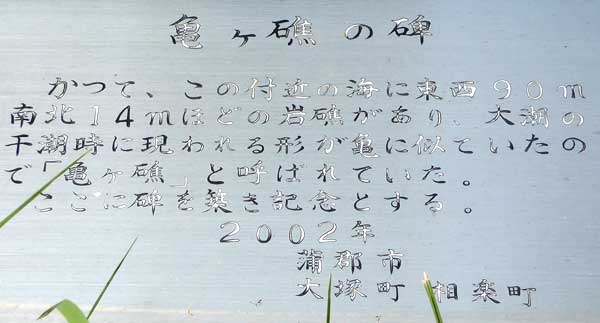 亀ヶ礁の碑
かつて、この付近の海に東西90m
南北14mほどの岩礁があり、大潮の
干潮時に現われる形が亀に似ていたの
で「亀ヶ礁」と呼ばれていた。
ここに碑を築き記念とする。
2002年
蒲郡市
大塚町 相楽町